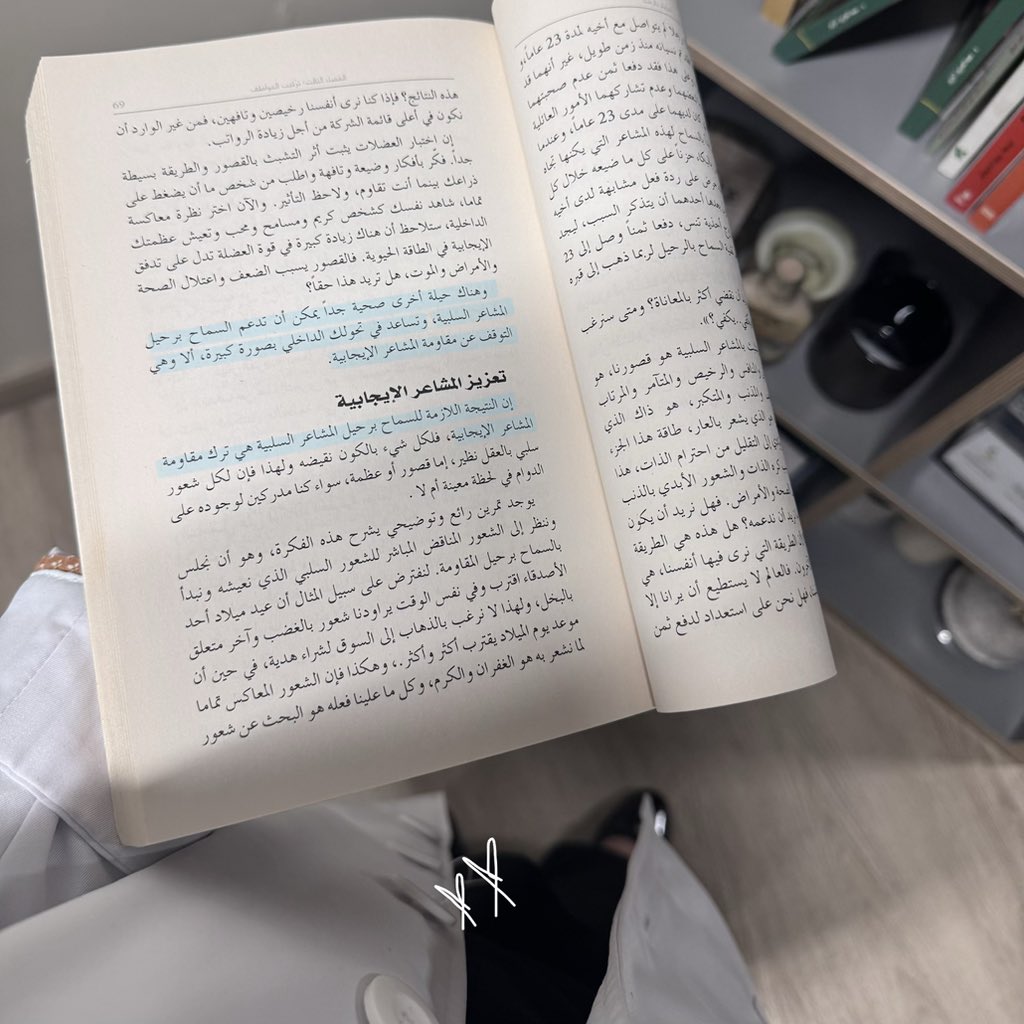 لم يتواصل مع أخيه لمدة 23 عاماً، و
نسيانه منذ زمن طويل، غير أنهما قد
هذا فقد دفعا ثمن عدم صحبتهما
وعدم تشاركهما الأمور العائلية
لديهما على مدى 23 عاماً، وعندما
السماح لهذه المشاعر التي يكنها تجاه
حزناً على كل ما ضيعه خلال كل
على ردة فعل مشابهة لدى أخيه
أحدهما أن يتذكر السبب، ليجد
أحذية تنس، دفعا ثمناً وصل إلى 23
السماح بالرحيل لربما ذهب إلى قبره
نقضي أكثر بالمعاناة؟ ومتى سنرغب
يكفي؟».
بالمشاعر السلبية هو قصورنا، هو
والرخيص والمتآمر والمرتاب
والمذنب والمتكبر، هو ذاك الذي
الذي يشعر بالعار، طاقة هذا الجزء
إلى التقليل من احترام الذات، هذا
كره الذات والشعور الأبدي بالذنب
والأمراض. فهل نريد أن يكون
أن ندعمه؟ هل هذه هي الطريقة
الطريقة التي نرى فيها أنفسنا، هي
فالعالم لا يستطيع أن يرانا إلا
فهل نحن على استعداد لدفع ثمن
الفصل الثالث: تركيب العواطف
69
هذه النتائج؟ فإذا كنا نرى أنفسنا رخيصين وتافهين، فمن غير الوارد أن
نكون في أعلى قائمة الشركة من أجل زيادة الرواتب.
إن اختبار العضلات يثبت أثر التشبث بالقصور والطريقة بسيطة
جداً. فكّر بأفكار وضيعة وتافهة واطلب من شخص ما أن يضغط على
ذراعك بينما أنت تقاوم، ولاحظ التأثير. والآن اختر نظرة معاكسة
تماما، شاهد نفسك كشخص كريم ومسامح ومحب وتعيش عظمتك
الداخلية، ستلاحظ أن هناك زيادة كبيرة في قوة العضلة تدل على تدفق
الإيجابية في الطاقة الحيوية. فالقصور يسبب الضعف واعتلال الصحة
والأمراض والموت، هل تريد هذا حقاً؟
وهناك حيلة أخرى صحية جداً يمكن أن تدعم السماح برحيل
المشاعر السلبية، وتساعد في تحولك الداخلي بصورة كبيرة، ألا وهي
التوقف عن مقاومة المشاعر الإيجابية.
تعزيز المشاعر الإيجابية
إن النتيجة اللازمة للسماح برحيل المشاعر السلبية هي ترك مقاومة
المشاعر الإيجابية، فلكل شيء بالكون نقيضه ولهذا فإن لكل شعور
سلبي بالعقل نظير، إما قصور أو عظمة، سواء كنا مدركين لوجوده على
الدوام في لحظة معينة أم لا.
يوجد تمرين رائع وتوضيحي يشرح هذه الفكرة، وهو أن نجلس
وننظر إلى الشعور المناقض المباشر للشعور السلبي الذي نعيشه ونبدأ
بالسماح برحيل المقاومة. لنفترض على سبيل المثال أن عيد ميلاد أحد
الأصدقاء اقترب وفي نفس الوقت يراودنا شعور بالغضب وآخر متعلق
بالبخل، ولهذا لا نرغب بالذهاب إلى السوق لشراء هدية، في حين أن
موعد يوم الميلاد يقترب أكثر وأكثر.، وهكذا فإن الشعور المعاكس تماما
لما نشعر به هو الغفران والكرم، وكل ما علينا فعله هو البحث عن شعور